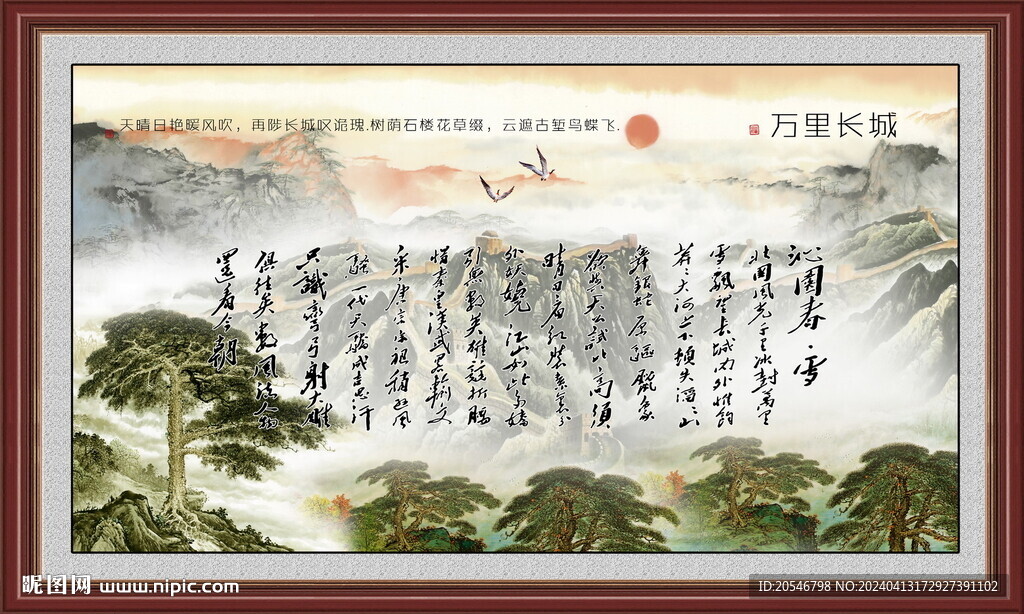 万里长城
天晴日艳暖风吹，再陟长城叹诡瑰.树荫石楼花草缀，云遮古堑鸟蝶飞.
沁園春·雪
北國風光千里冰封萬里
雪飘望长城内外惟余
莽々大河上下顿失滔々山
舞银蛇原驱腊象
欲与天公试比高须
晴日看红装素裹分
外妖娆江山如此多娇
引无数英雄竞折腰
惜秦皇汉武略输文
采唐宗宋祖稍逊风
骚一代天骄成吉思汗
只識彎弓射大雕
俱往矣数风流人物
還看今朝
昵图网 www.nipic.com
ID:20546798 NO:20240413172927391102